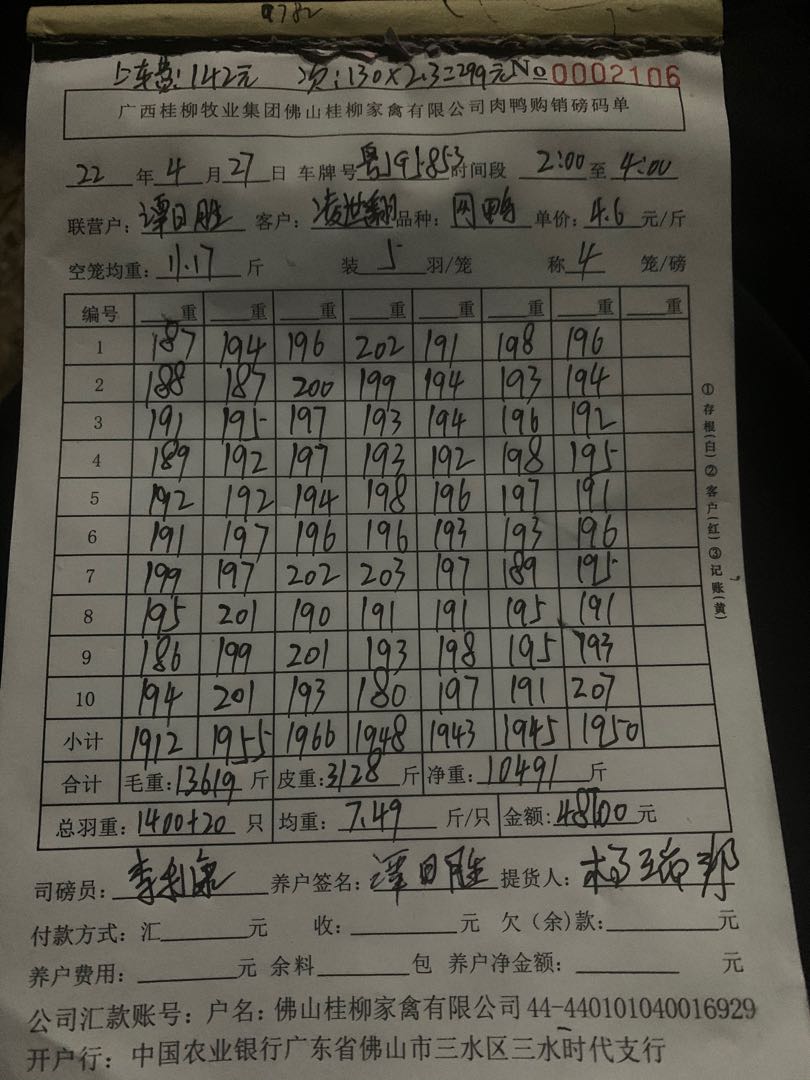 9782
上车费:142元 次:130×2.3=299元 No 0002106
广西桂柳牧业集团佛山桂柳家禽有限公司肉鸭购销磅码单
22 年 4 月 27 日 车牌号 粤J95853 时间段 2:00 至 4:00
联营户: 谭日胜 客户: 凌世翻 品种: 肉鸭 单价: 4.6 元/斤
空笼均重: 11.17 斤 装 5 羽/笼 称 4 笼/磅
编号 重 重 重 重 重 重 重 重
1 187 194 196 202 191 198 196
2 188 187 200 199 194 193 194
3 191 195 197 193 194 196 192
4 189 192 197 193 192 198 195
5 192 192 194 198 196 197 191
6 191 197 196 196 193 193 196
7 199 197 202 203 197 189 195
8 195 201 190 191 191 195 191
9 186 199 201 193 198 195 193
10 194 201 193 180 197 191 207
小计 1912 1955 1966 1948 1943 1945 1950
合计 毛重:13619 斤 皮重:3128 斤 净重:10491 斤
总羽重: 1400+20 只 均重: 7.49 斤/只 金额: 48700 元
司磅员: 养户签名: 谭日胜 提货人:
付款方式:汇 元 收: 元 欠(余)款: 元
养户费用: 元 余料 包 养户净金额: 元
公司汇款账号:户名:佛山桂柳家禽有限公司 44-440101040016929
开户行:中国农业银行广东省佛山市三水区三水时代支行
①存根(白)②客户(红)③记账(黄)